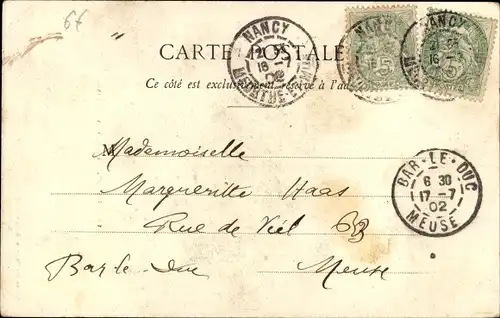 6f
CARTE POSTALE
Ce côté est exclusivement réservé à l'ad
NANCY
16-7
02
MEURTHE-ET-MOSELLE
NANCY
NANCY
16-7
5
5
Mademoiselle
Margueritte Haas
Rue de Véel 62
Bar le Duc Meuse
BAR-LE-DUC
6 30
17-7
02
MEUSE